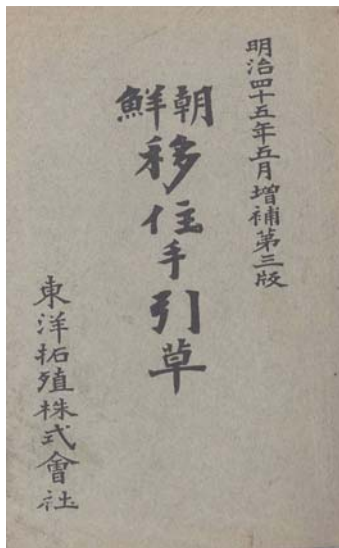 明治四十五年五月增補第三版
朝鮮
移住手引草
東洋拓殖株式會社